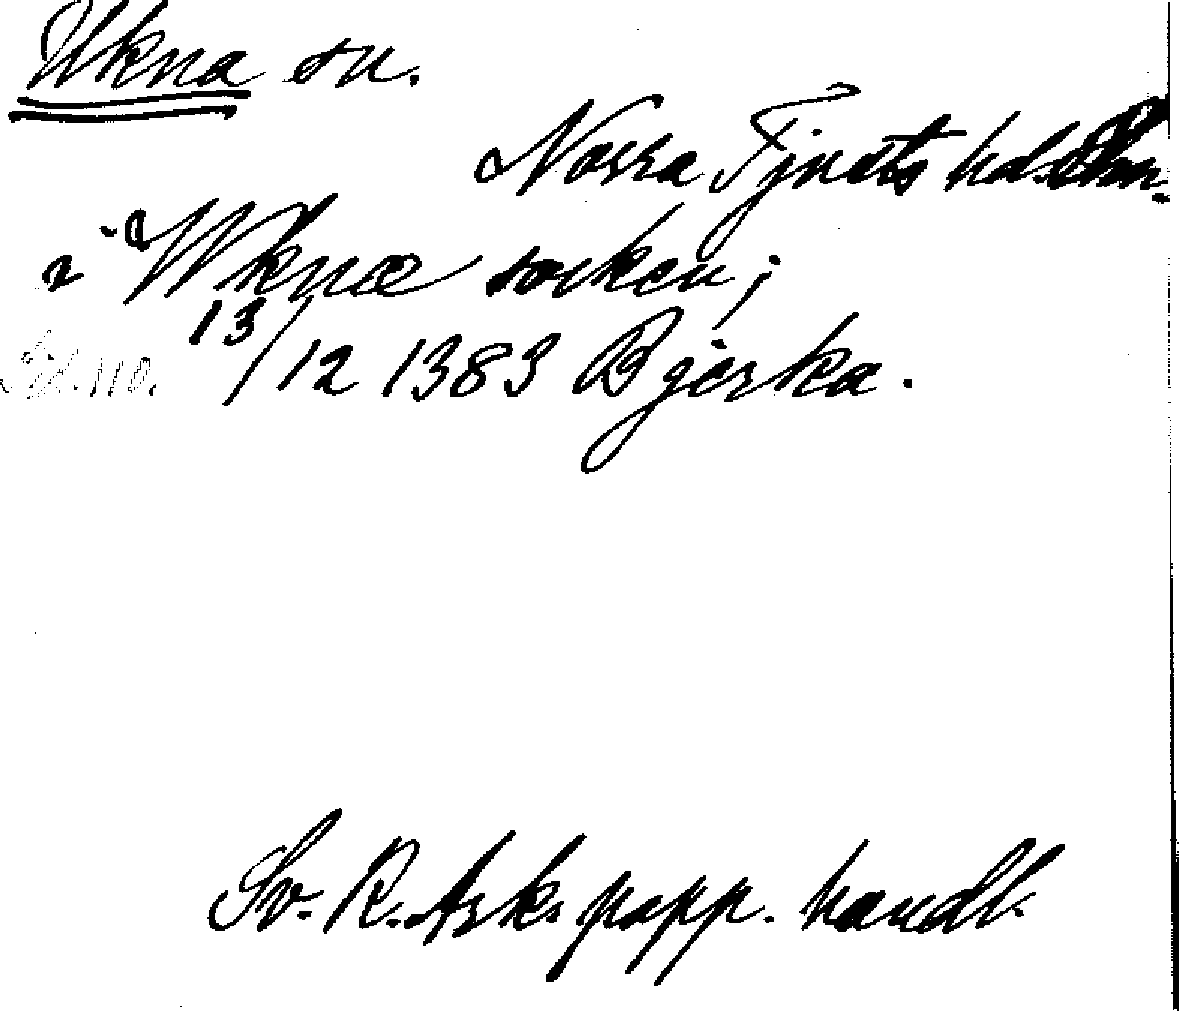 Ukna sn.
Norra Tjusts hd. Sm.
i "Wknæ socken;
13/12 1383 Bjerka.
Sv. R. Ark. papp. handl.